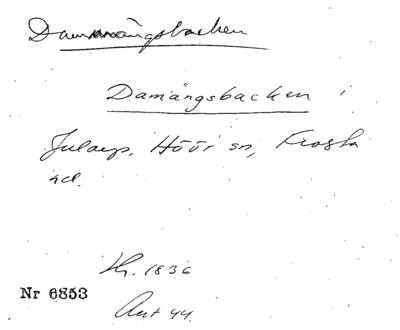 Dammängsbacken
Damängsbacken i
Jularp, Höör sn, Frosta
hd.
Hr. 1836
Nr 6853
Ant 44.